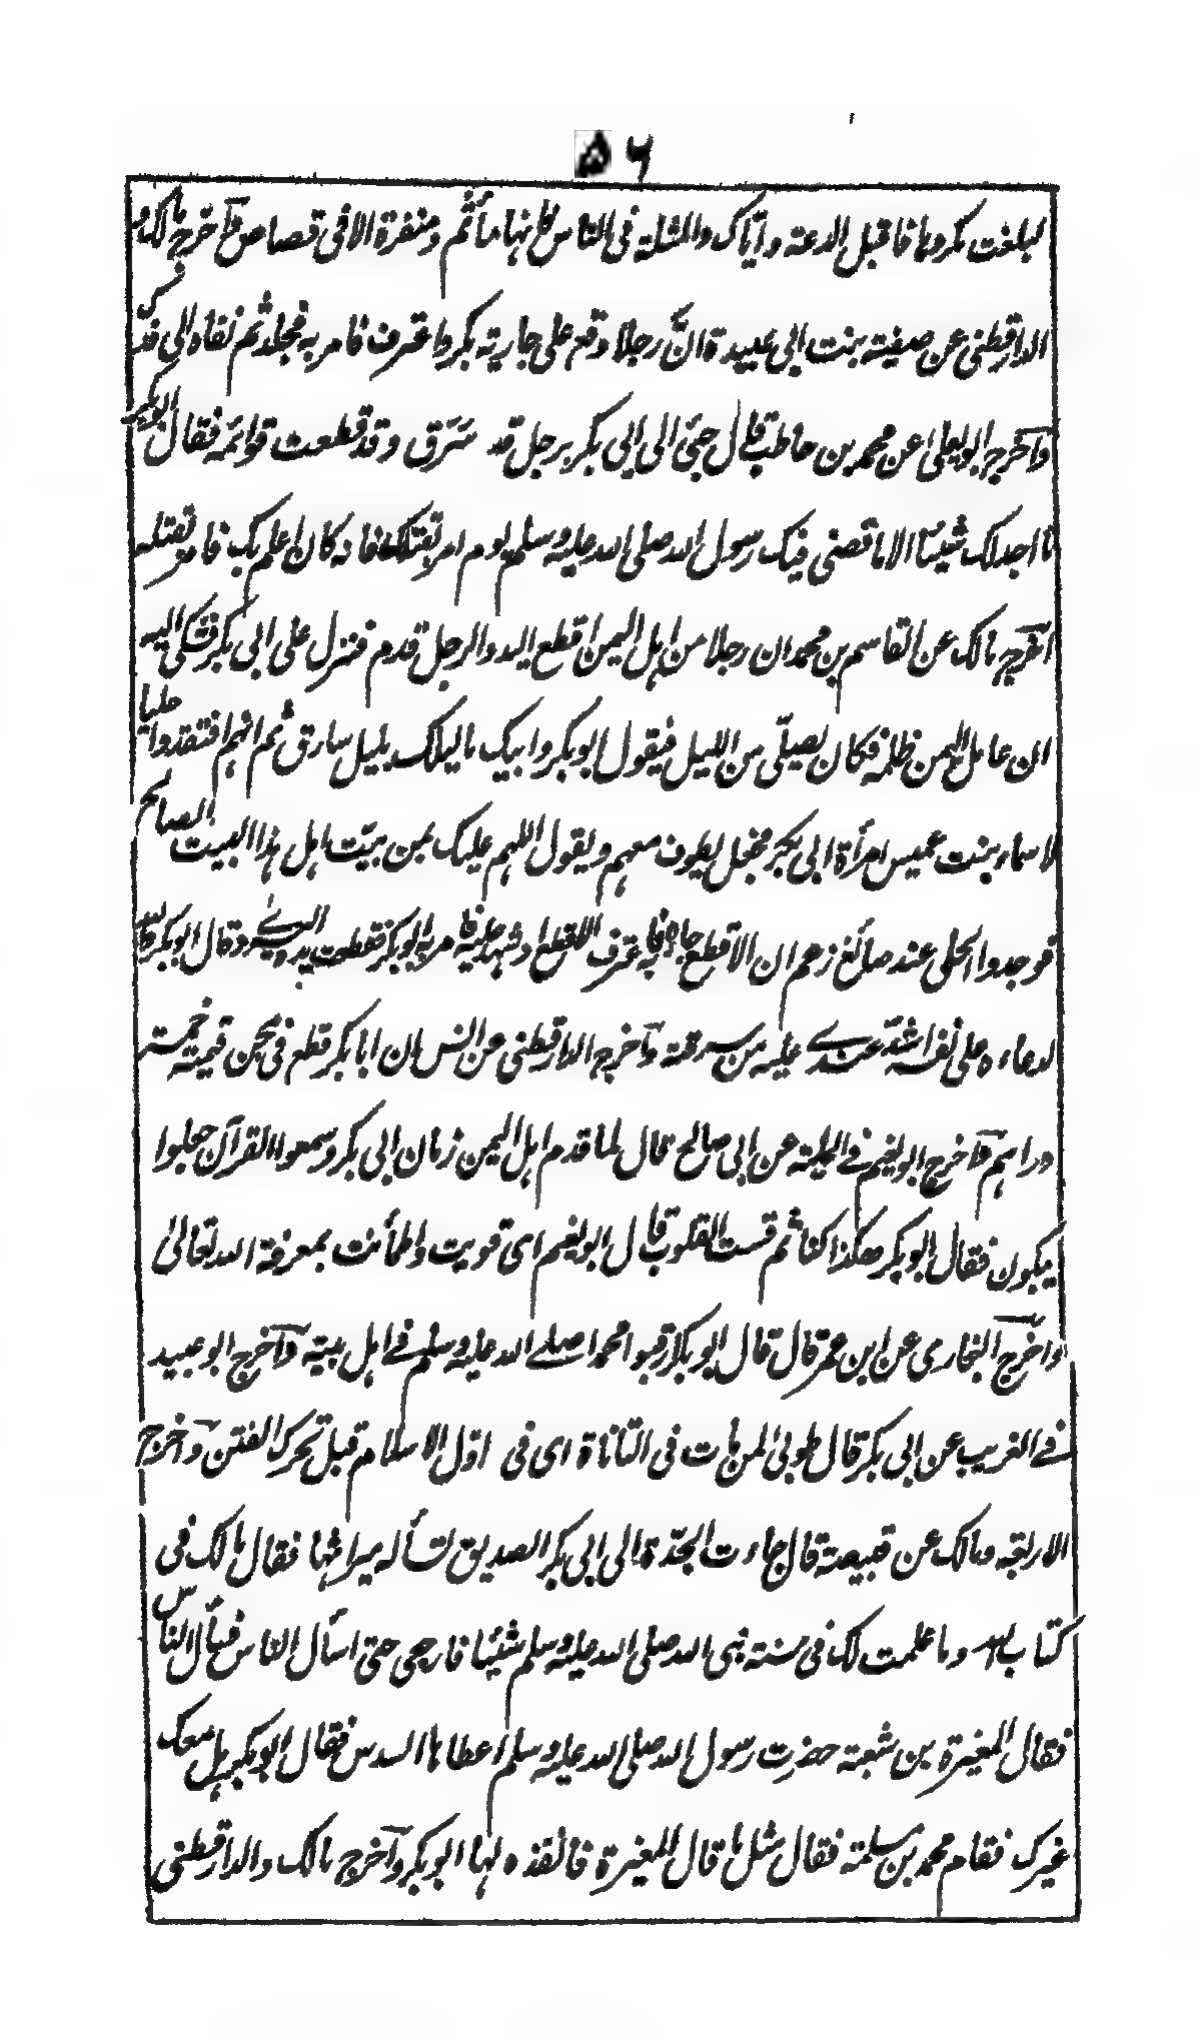 ۵۶
لبلغت مكروها فاقبل الدعة واياك والمثلة فى الناس فانها مأثم ومنفرة الا فى قصاص وآخرج مالك و
الدارقطنى عن صفية بنت ابى عبيدة انّ رجلا وقع على جارية بكر واعترف فامر به فجلد ثم نفاه الى فدك
وآخرج ابو يعلى عن محمد بن حاطب قال جئ الى ابى بكر برجل قد سَرَق وقد قطعت قوائمه فقال ابو بكر
ما اجد لك شيئاً الا ما قضى فيك رسول الله صلى الله عليه وسلم يوم امر بقتلك فانه كان اعلم بك فامر بقتله
اخرج مالك عن القاسم بن محمد ان رجلا من اهل اليمن اقطع اليد والرجل قدم فنزل على ابى بكر فشكى اليه
ان عامل اليمن ظلمه فكان يصلّى من الليل فيقول ابو بكر وابيك ما ليلك بليل سارق ثم انهم افتقدوا حليا
لاسماء بنت عميس امرأة ابى بكر فجعل يطوف معهم ويقول اللهم عليك بمن بيّت اهل هذا البيت الصالح
فوجدوا الحلى عند صائغ زعم ان الاقطع جاءه به فاعترف الاقطع او شهد عليه فامر به ابو بكر فقطعت يده اليسرى وقال ابو بكر والله
لدعاءه على نفسه اشدّ عندى عليه من سرقته وآخرج الدارقطنى عن انس ان ابا بكر قطع فى مجن قيمته خمسة
دراهم وآخرج ابو نعيم فى الحلية عن ابى صالح قال لما قدم اهل اليمن زمان ابى بكر وسمعوا القرآن جعلوا
يبكون فقال ابو بكر هكذا كنا ثم قست القلوب قال ابو نعيم اى قويت واطمأنت بمعرفة الله تعالىٰ
وآخرج البخارى عن ابن عمر قال قال ابو بكر ارقبوا محمدا صلى الله عليه وسلم فى اهل بيته وآخرج ابو عبيد
فى الغريب عن ابى بكر قال طوبىٰ لمن مات فى النأنأة اى فى اوّل الاسلام قبل تحرك الفتن وآخرج
الاربعة ومالك عن قبيصة قال جاءت الجدّة الى ابى بكر الصديق تسأله ميراثها فقال مالك فى
كتاب الله وما علمت لك فى سنة نبى الله صلى الله عليه وسلم شيئا فارجعى حتى اسأل الناس فسأل الناس
فقال المغيرة بن شعبة حضرت رسول الله صلى الله عليه وسلم اعطاها السدس فقال ابو بكر هل معك
غيرك فقام محمد بن مسلمة فقال مثل ما قال المغيرة فانفذه لها ابو بكر وآخرج مالك والدارقطنى